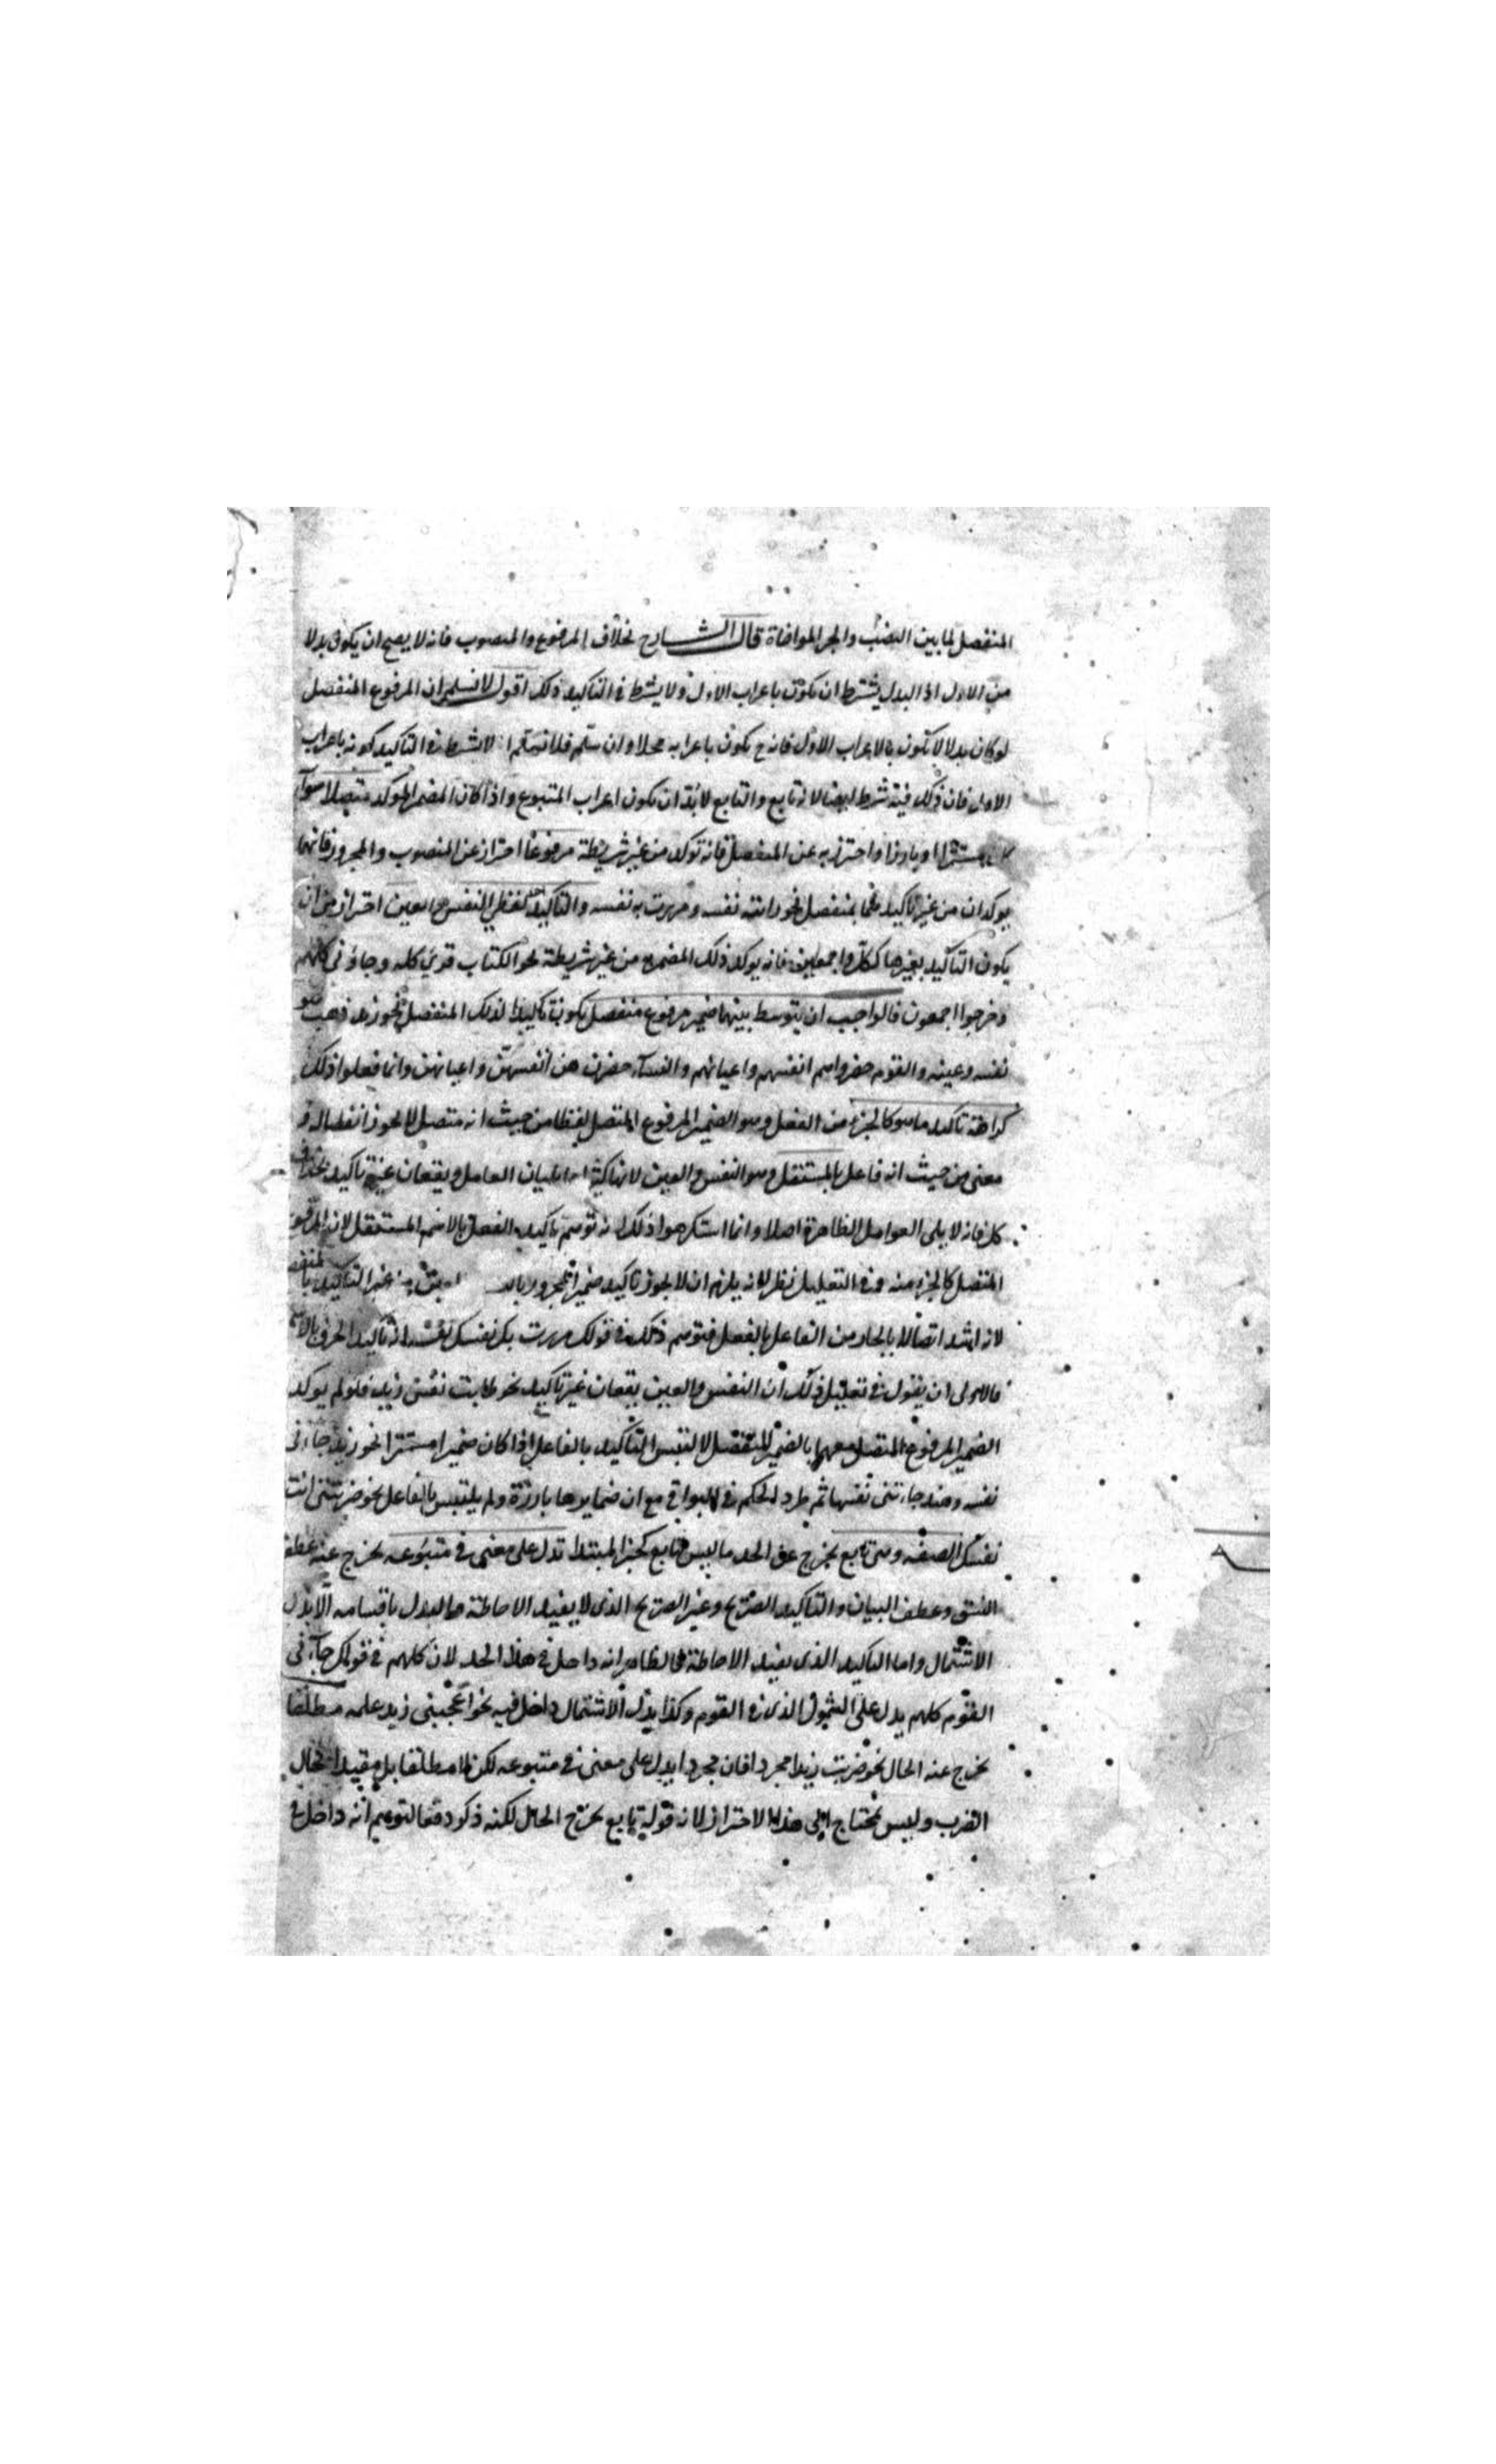 المنفصل لما بين النصب والجر الموافاة قال الشارح بخلاف المرفوع والمنصوب فانه لا يصح ان يكون بدلا
من الاول اذ البدل يشترط ان يكون باعراب الاول ولا يشترط في التاكيد ذلك اقول لا نسلم ان المرفوع المنفصل
لو كان بدلا لا يكون باعراب الاول فانه ح يكون باعرابه محلا وان سلم فلا نسلم ان لا يشترط في التاكيد كونه باعراب
الاول فان ذلك فيه شرط ايضا لانه تابع والتابع لابد ان يكون اعراب المتبوع واذا كان المضمر الموكد متصلا سوآ
كان مستترا او بارزا واحترز به عن المنفصل فانه توكد من غير شريطة مرفوعا احتراز عن المنصوب والمجرور فانهما
يوكدان من غير تاكيدهما بمنفصل نحو رايته نفسه ومررت به نفسه والتاكيد بلفظي النفس والعين احتراز من ان
يكون التاكيد بغيرها ككل واجمعين فانه يوكد ذلك المضمر من غير شريطة نحو الكتاب قري كله وجاؤني كلهم
وخرجوا اجمعون فالواجب ان يتوسط بينهما ضمير مرفوع منفصل يكون تاكيدا لذلك المنفصل نحو زيد ذهب هو
نفسه وعينه والقوم حضروا هم انفسهم واعيانهم والنسآء حضرن هن انفسهن واعيانهن وانما فعلوا ذلك
كراهة تاكيد ما هو كالجزء من الفعل وهو الضمير المرفوع المتصل لفظا من حيث انه متصل لا يجوز انفصاله و
معنى من حيث انه فاعل بالمستقل وهو النفس والعين لانها كثيرا ما يليان العامل ويقعان غير تاكيد بخلاف
كل فانه لا يلي العوامل الظاهرة اصلا وانما استكرهوا ذلك لانه توهم تاكيد الفعل بالاسم المستقل لان المرفوع
المتصل كالجزء منه وفي التعليل نظر لانه يلزم ان لا يجوز تاكيد ضمير المجرور من غير التاكيد بالمنفصل
لانه اشد اتصالا بالجار من الفاعل بالفعل فتوهم ذلك في قولك مررت بك نفسك تاكيد الحرف بالاسم
فالاولى ان يقول في تعليل ذلك ان النفس والعين يقعان غير تاكيد نحو طابت نفس زيد فلو لم يوكد
الضمير المرفوع المتصل معهما بالضمير المنفصل لالتبس التاكيد بالفاعل اذا كان ضميرا مستترا نحو زيد جاءني
نفسه وهند جاءتني نفسها ثم طرد الحكم في البواقي مع ان ضمايرها بارزة ولم يلتبس بالفاعل نحو ضربتني انت
نفسك الصفة وهي تابع يخرج عن الحد ما ليس بتابع كخبر المبتدا تدل على معنى في متبوعه يخرج عنه عطف
النسق وعطف البيان والتاكيد الصريح وغير الصريح الذي لا يفيد الاحاطة والبدل باقسامه الا بدل
الاشتمال واما التاكيد الذي يفيد الاحاطة فالظاهر انه داخل في هذا الحد لان كلهم في قولك جآءني
القوم كلهم يدل على الشمول الذي في القوم وكذا بدل الاشتمال داخل فيه نحو اعجبني زيد علمه مطلقا
يخرج عنه الحال نحو ضربت زيدا مجردا فان مجردا يدل على معنى في متبوعه لكن لا مطلقا بل مقيدا بحال
الضرب وليس يحتاج الى هذا الاحتراز لان قوله تابع يخرج الحال لكنه ذكر دفعا لتوهم انه داخل في